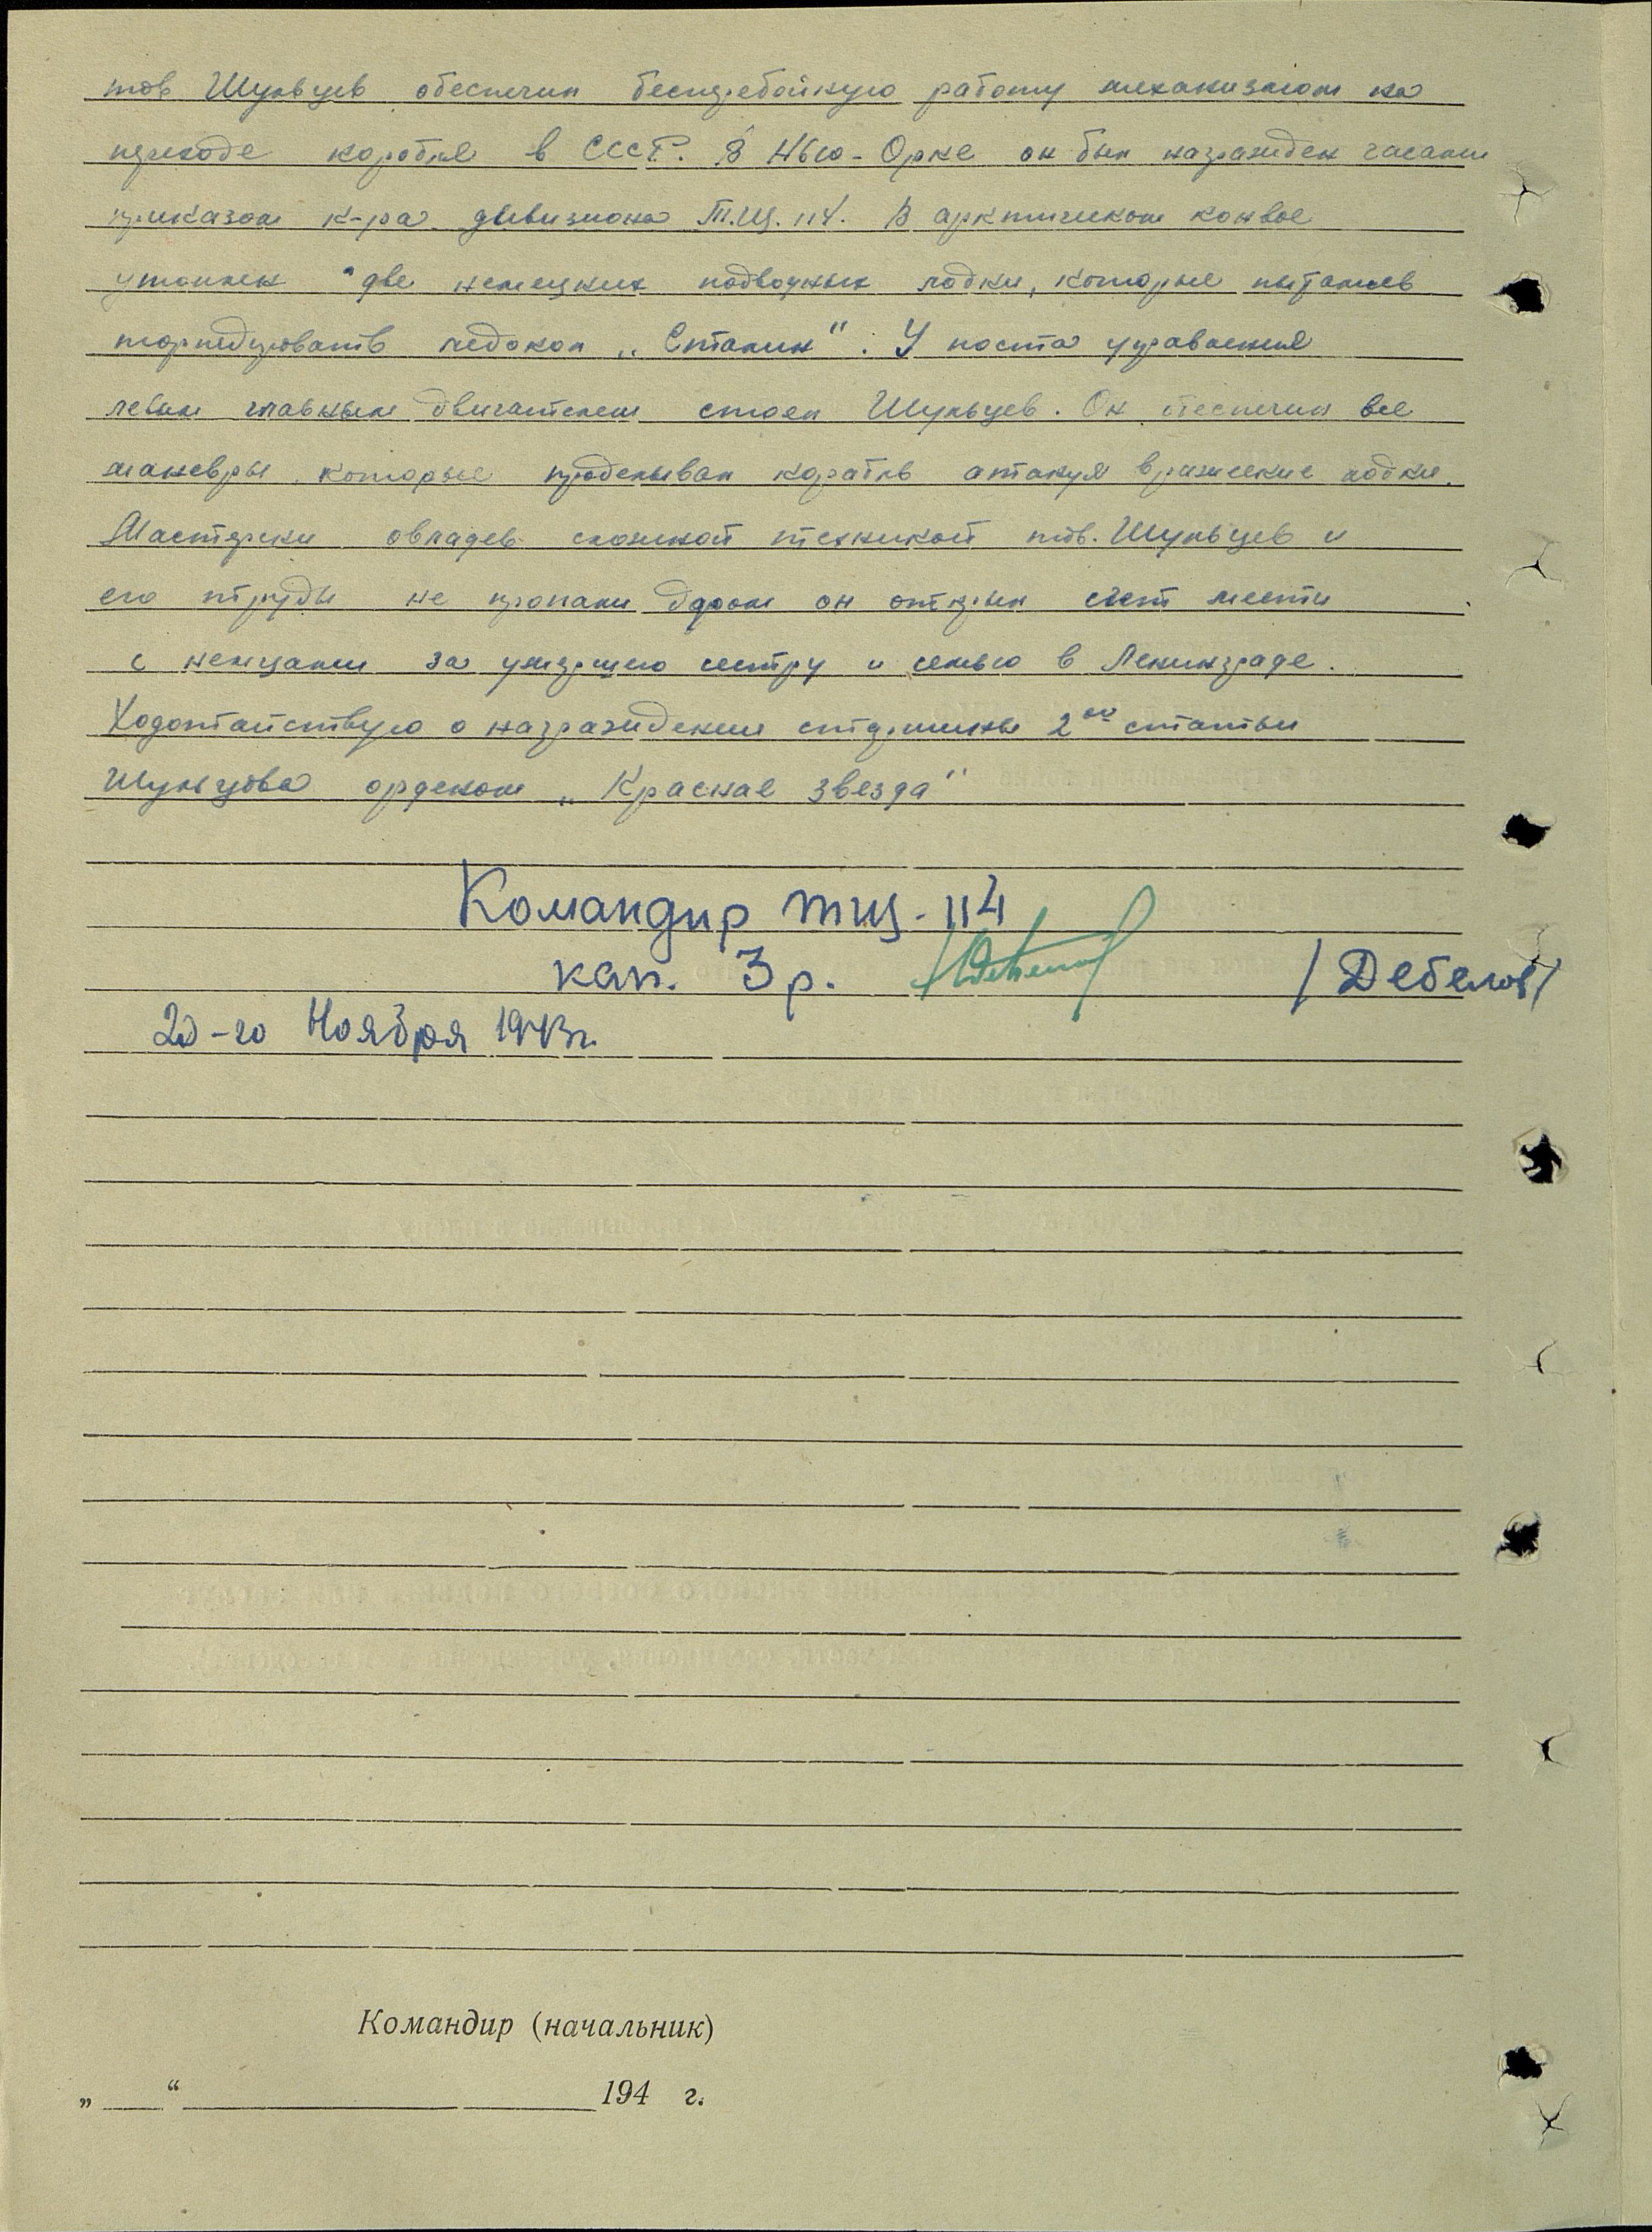 тов Шульцев обеспечил бесперебойную работу механизмом на
переходе корабля в СССР. В Нью-Орке он был награжден часами
приказом к-ра дивизиона Т.Щ. 114. В арктическом конвое
утоплен две немецких подводных лодки, которые пытались
торпедировать ледокол „Сталин". У поста управления
левым главным двигателем стоял Шульцев. Он обеспечил все
маневры которые проделывал корабль атакуя вражеские лодки.
Мастерски овладев сложной техникой тов. Шульцев и
его труды не пропали даром он открыл счет мести
с немцами за умершую сестру и семью в Ленинграде.
Ходотайствую о награждении старшины 2ой статьи
Шульцова орденом „Красная звезда"
Командир тщ-114
кап. 3 р. /Дебелов/
20-го Ноября 1943г.
Командир (начальник)
„ “ 194 г.